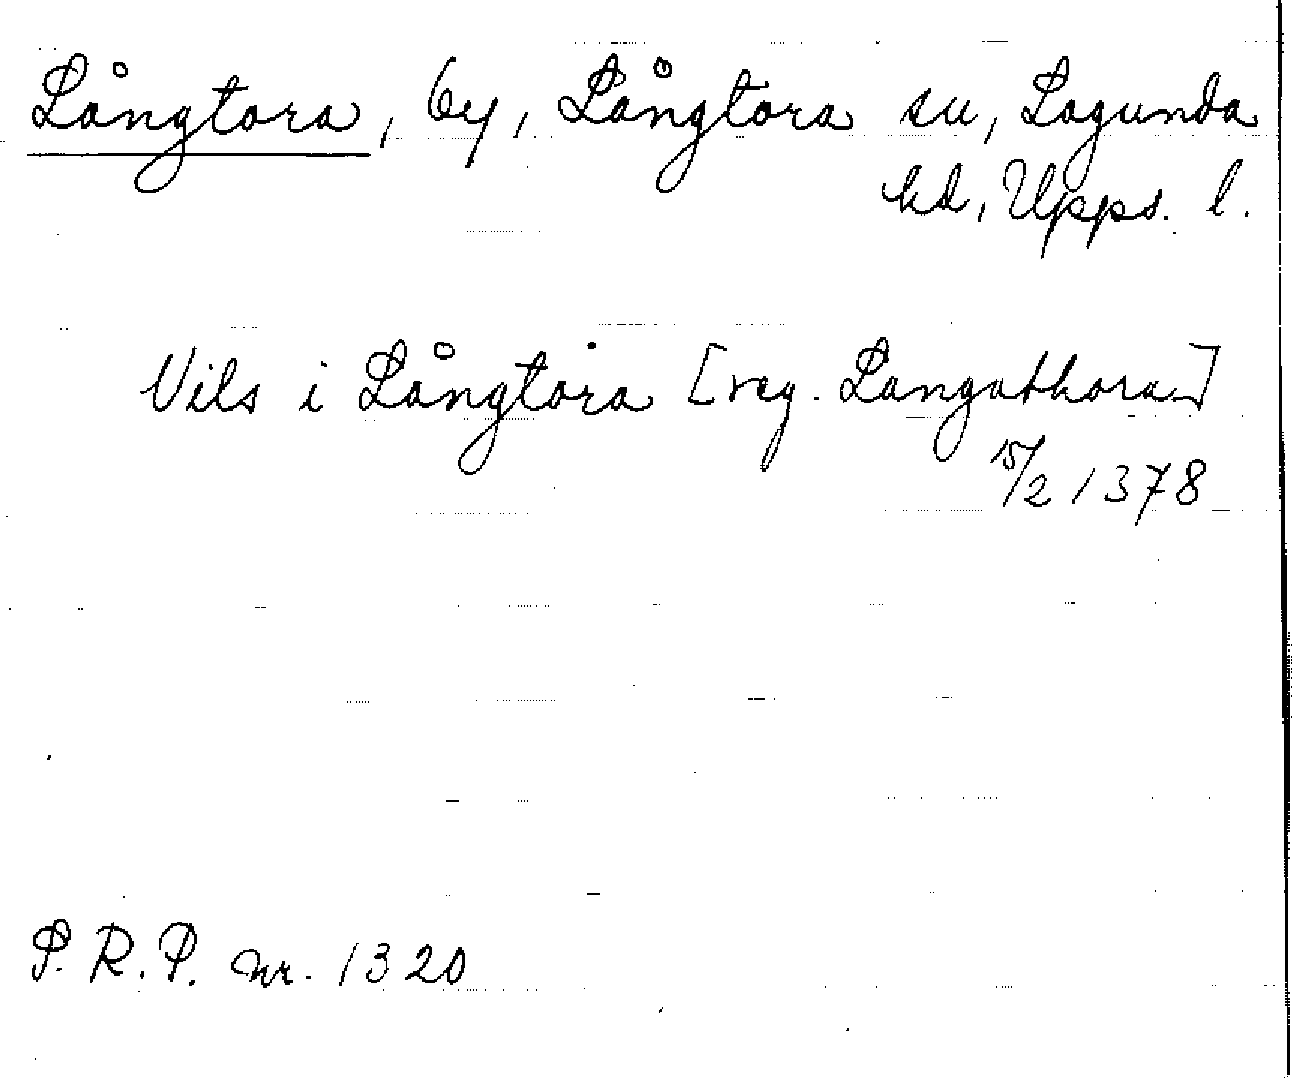 Långtora, by, Långtora sn, Lagunda
hd, Upps. l.
Nils i Långtora [reg. Langathora]
15/2 1378
P. R. P. nr. 1320